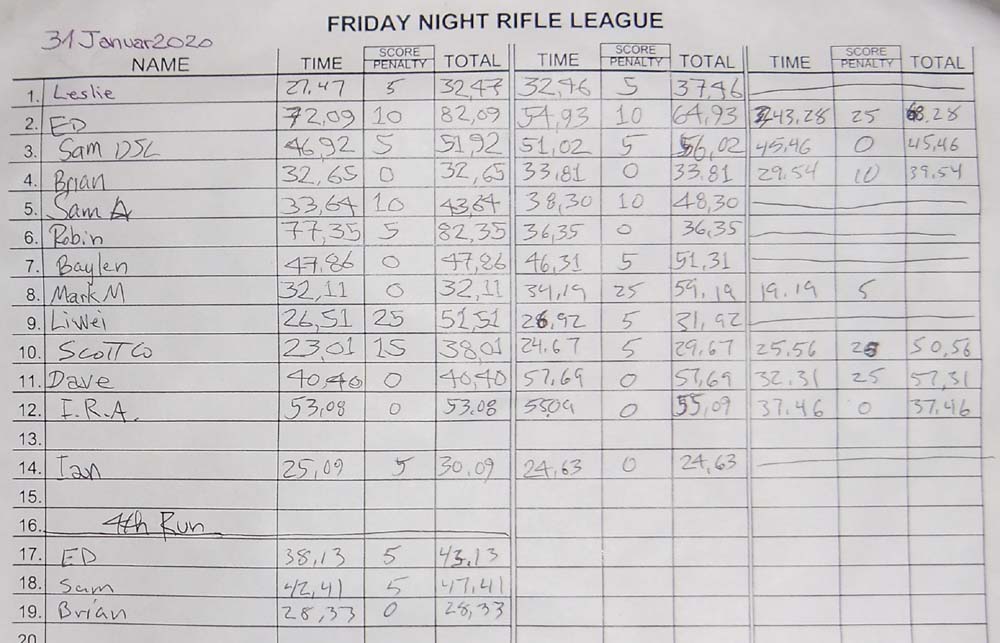 FRIDAY NIGHT RIFLE LEAGUE
31 Januar 2020
NAME TIME SCORE PENALTY TOTAL TIME SCORE PENALTY TOTAL TIME SCORE PENALTY TOTAL
1. Leslie 27,47 5 32,47 32,46 5 37,46
2. ED 72,09 10 82,09 54,93 10 64,93 43,28 25 68,28
3. Sam DSC 46,92 5 51,92 51,02 5 56,02 45,46 0 45,46
4. Brian 32,65 0 32,65 33,81 0 33,81 29.54 10 39.54
5. Sam A 33,64 10 43,64 38,30 10 48,30
6. Robin 77,35 5 82,35 36,35 0 36,35
7. Baylen 47.86 0 47,86 46,31 5 51,31
8. Mark M 32,11 0 32,11 34,19 25 59,19 19.19 5
9. LiWei 26,51 25 51,51 26,92 5 31,92
10. Scott Co 23,01 15 38,01 24.67 5 29,67 25,56 25 50,56
11. Dave 40,40 0 40,40 57,69 0 57,69 32.31 25 57,31
12. I.R.A. 53,08 0 53,08 55,09 0 55,09 37.46 0 37,46
13.
14. Ian 25,09 5 30,09 24,63 0 24,63
15.
16. 4th Run
17. ED 38,13 5 43,13
18. Sam 42,41 5 47,41
19. Brian 28,33 0 28,33
20